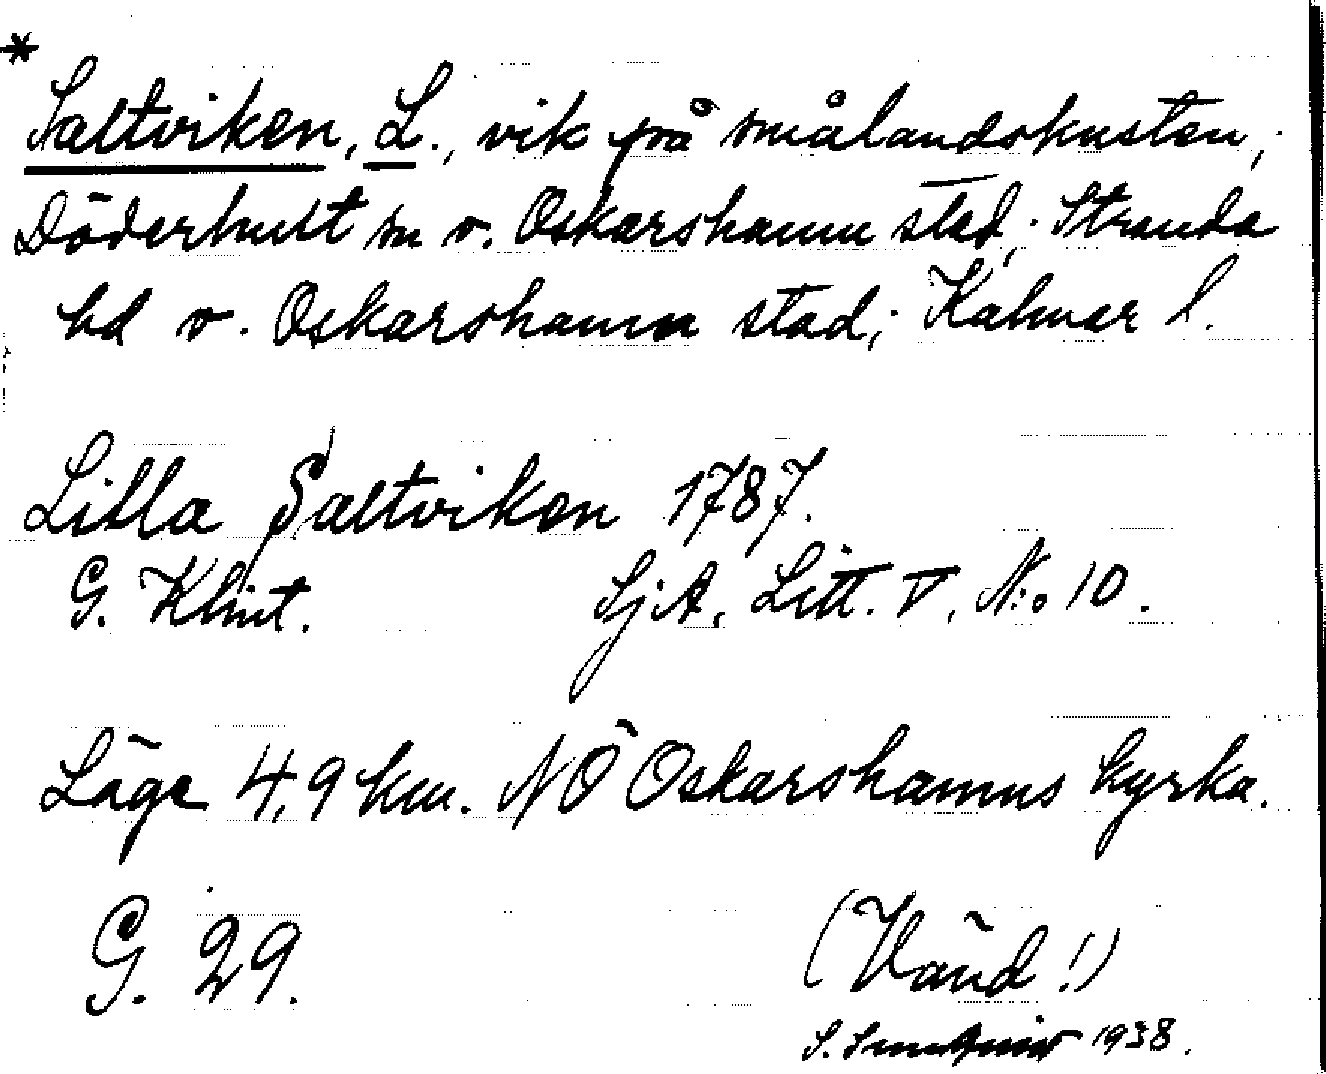 *
Saltviken, L., vik på smålandskusten;
Döderhult sn o. Oskarshamn stad; Stranda
hd o. Oskarshamn stad; Kalmar l.
Lilla Saltviken 1787.
G. Klint. SjA, Litt. V, N:o 10.
Läge 4,9 km. NÖ Oskarshamns kyrka.
G. 29.
(Vänd!)
S. 1938.